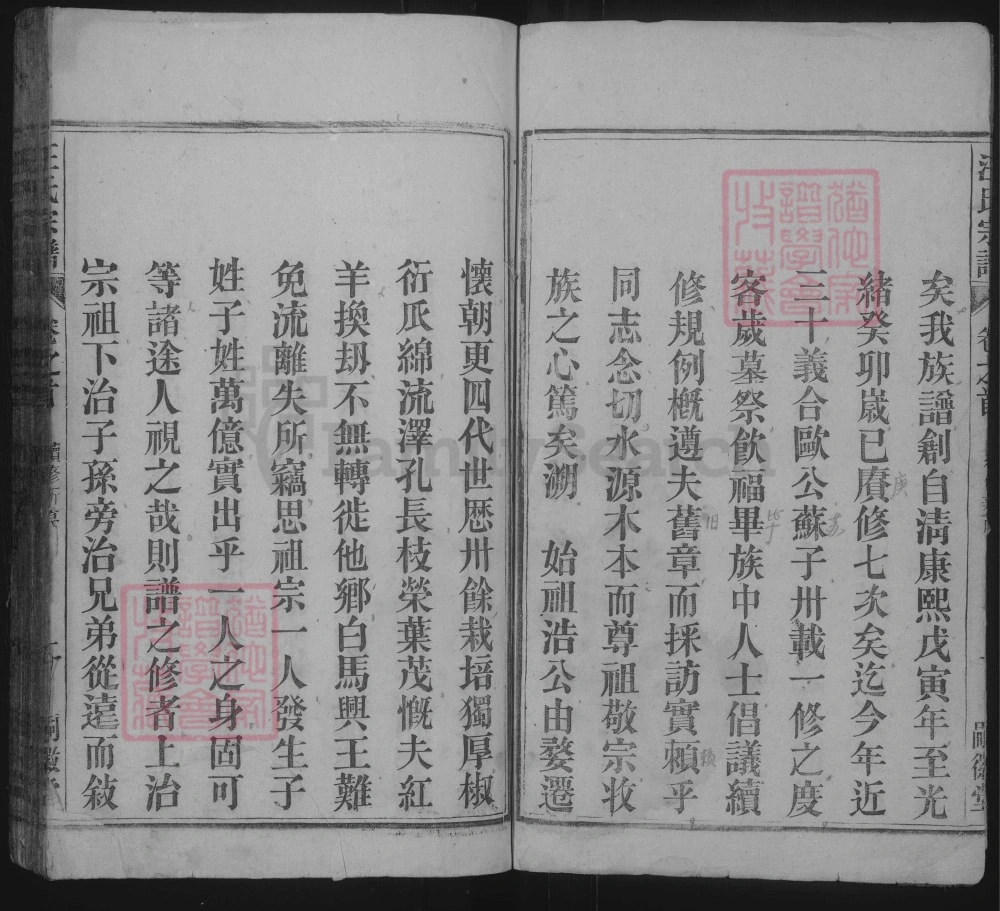 汪氏宗譜
卷之首
嗣徽堂
矣我族譜創自清康熙戊寅年至光
緒癸卯歲已賡修七次矣迄今年近
三十義合歐公蘇子卅載一修之度
客歲墓祭飲福畢族中人士倡議續
修規例概遵夫舊章而採訪實頼乎
同志念切水源木本而尊祖敬宗收
族之心篤矣溯　始祖浩公由婺遷
懷朝更四代世歴卅餘栽培獨厚椒
衍瓜綿流澤孔長枝榮葉茂慨夫紅
羊換劫不無轉徙他鄉白馬興王難
免流離失所竊思祖宗一人發生子
姓子姓萬億實出乎一人之身固可
等諸途人視之哉則譜之修者上治
宗祖下治子孫旁治兄弟從遠而敍
FamilySearch